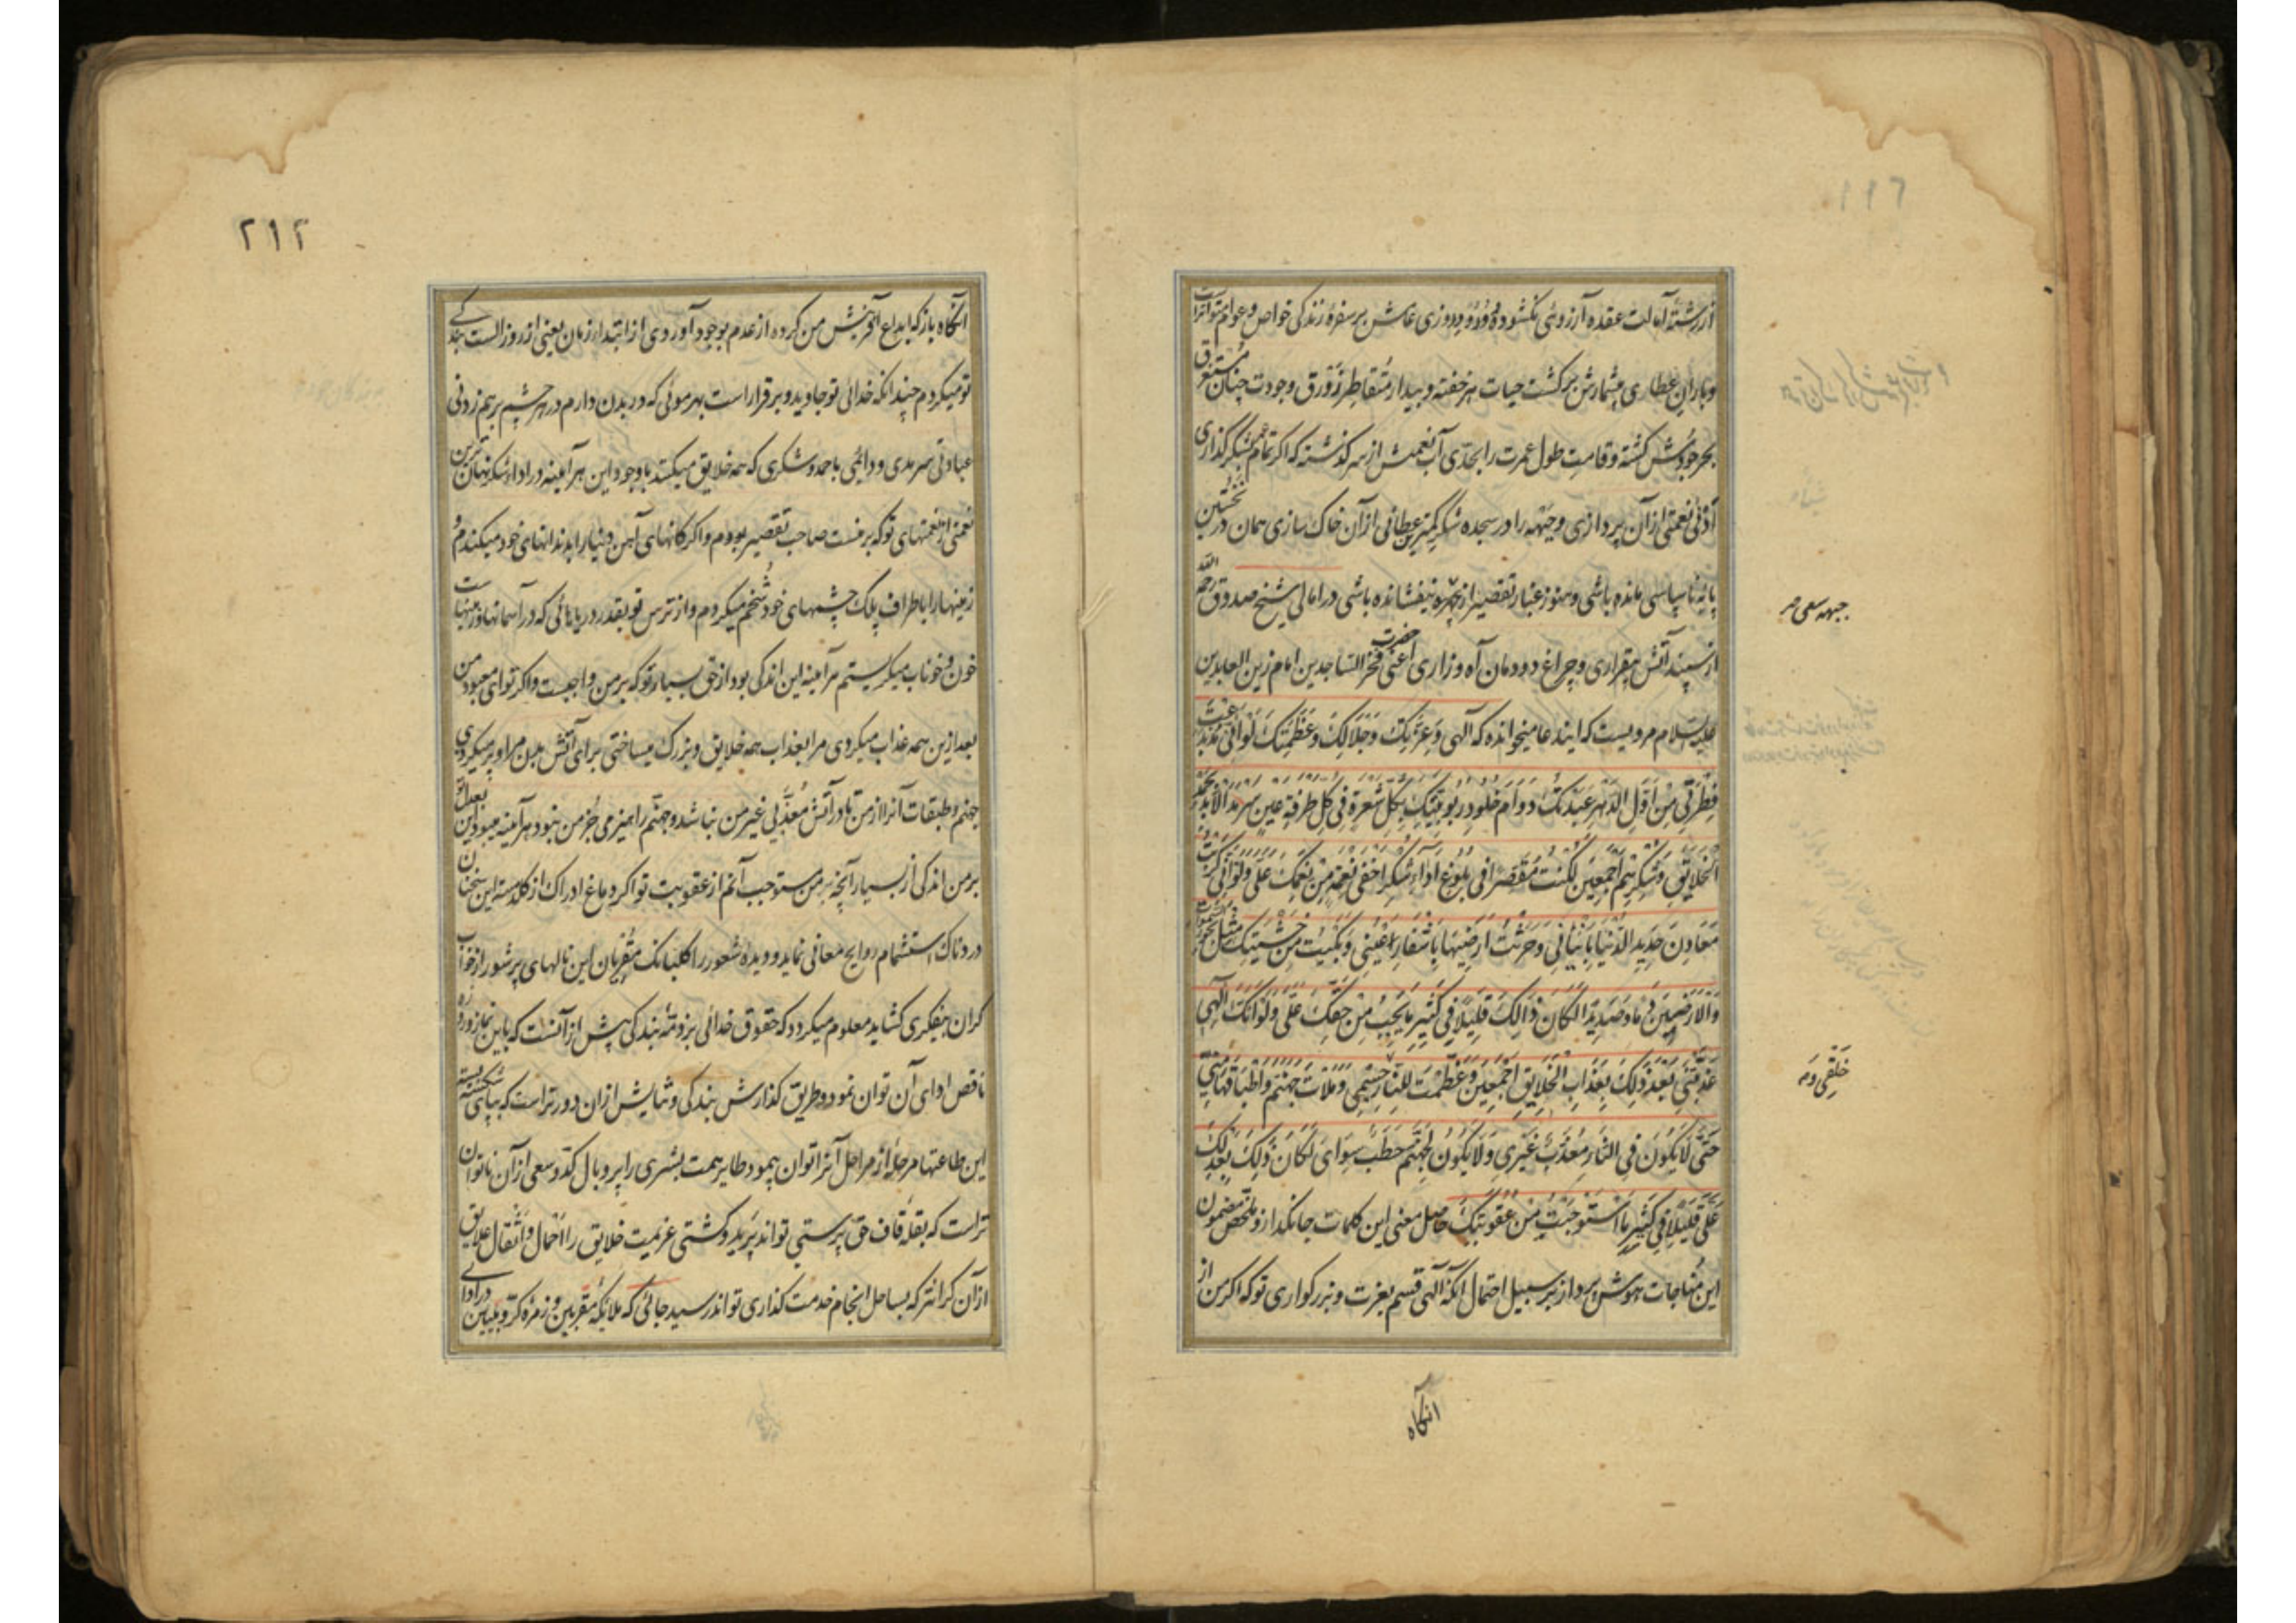 از رشتهٔ آمالت عقدهٔ آرزوئی نگشوده و روزی عامش بر سفرهٔ زندگی خواص و عوام متواتر
و باران عطای بیشمارش بر کشت حیات هر خفته و بیدار متقاطر زورق وجودت چنان مستغرق
بحر جودش گشته و قامت طول عمرت را بحدی آب نعمتش از سر گذشته که اگر تمام عمر بشکر گذاری
أدنی نعمتی از آن پردازی و جبهه را در سجده شکر کمترین عطائی از آن خاک سازی همان در نخستین
پایهٔ ناسپاسی مانده باشی و هنوز غبار تقصیر از چهره نیفشانده باشی در امالی شیخ صدوق رحمه الله
از سپند آتش بیقراری و چراغ دودمان آه و زاری أعنی حضرت فخر الساجدین امام زین العابدین
علیه السلام مرویست که این دعا میخوانده که الهی وَعِزَّتِكَ وَجَلَالِكَ وَعَظَمَتِكَ لَوْ أَنِّي مُنْذُ بَدَعْتَ
فِطْرَتِي مِنْ أَوَّلِ الدَّهْرِ عَبَدْتُكَ دَوَامَ خُلُودِ رُبُوبِيَّتِكَ بِكُلِّ شَعْرَةٍ فِي كُلِّ طَرْفَةِ عَيْنٍ سَرْمَدَ الْأَبَدِ بِحَمْدِ
الْخَلَايِقِ وَشُكْرِهِمْ أَجْمَعِينَ لَكُنْتُ مُقَصِّرًا فِي بُلُوغِ أَدَاءِ شُكْرِ أَخْفَى نِعْمَةٍ مِنْ نِعَمِكَ عَلَيَّ وَلَوْ أَنِّي كَرَبْتُ
مَعَادِنَ حَدِيدِ الدُّنْيَا بِأَنْيَابِي وَحَرَثْتُ أَرَضِيهَا بِأَشْفَارِ عَيْنِي وَبَكَيْتُ مِنْ خَشْيَتِكَ مِثْلَ بُحُورِ السَّمَوَاتِ
وَالْأَرَضِينَ دَمًا وَصَدِيدًا لَكَانَ ذَالِكَ قَلِيلًا فِي كَثِيرِ مَا يَجِبُ مِنْ حَقِّكَ عَلَيَّ وَلَوْ أَنَّكَ الٰهِي
عَذَّبْتَنِي بَعْدَ ذَلِكَ بِعَذَابِ الْخَلَايِقِ أَجْمَعِينَ وَعَظَّمْتَ لِلنَّارِ جِسْمِي وَمَلَأْتَ جَهَنَّمَ وَأَطْبَاقَهَا مِنِّي
حَتَّى لَا يَكُونَ فِي النَّارِ مُعَذَّبٌ غَيْرِي وَلَا يَكُونُ لِجَهَنَّمَ حَطَبٌ سِوَايَ لَكَانَ ذَلِكَ بِعَدْلِكَ
عَلَيَّ قَلِيلًا فِي كَثِيرِ مَا اسْتَوْجَبْتُ مِنْ عُقُوبَتِكَ حاصل معنی این کلمات جانگداز و ملخص مضمون
این مناجات هوش پرداز بر سبیل احتمال آنکه الهی قسم بعزت و بزرگواری تو که اگر من از
آنگاه
جبهه سعی
خَلْقِي
۲۱۲
آنگاه باز که ابداع آفرینش من کرده از عدم بوجود آوردی از ابتداء زمان یعنی از روز الست بندگی
تو میکردم چندانکه خدائی تو جاوید و برقرار است بهر موئی که در بدن دارم در هر چشم برهم زدنی
عبادتی سرمدی و دائمی با حمد و شکری که همه خلایق میکنند باوجود این هر آینه در اداء شکر نهان ترین
نعمتی از نعمتهای تو که بر منست صاحب تقصیر بودم و اگر کانهای آهن دنیا را بدندانهای خود میکندم و
زمینها را باطراف پلک چشمهای خود شخم میکردم و از ترس تو بقدر دریاهائی که در آسمانها و زمینهاست
خون و خوناب میگریستم هر آینه این اندکی بود از حق بسیار تو که بر من واجبست و اگر تو ای معبود من
بعد ازین همه عذاب میکردی مرا بعذاب همه خلایق و بزرگ میساختی برای آتش بدن مرا و پر میکردی
جهنم و طبقات آنرا از من تا در آتش مُعَذَّبی غیر من نباشد و جهنم را هیزمی جز من نبود هر آینه میبود این بعدل تو
بر من اندکی از بسیار آنچه من مستوجب آنم از عقوبت تو اگر دماغ ادراک از گلدسته این سخنان
دردناک استشمام روایح معانی نماید و دیدهٔ شعور را گلبانگ مقریان این نالهای پرشور از خواب
گران بیفکری گشاید معلوم میگردد که حقوق خدائی بر ذمهٔ بندگی بیش از آنست که باین نماز و روزهٔ
ناقص ادای آن توان نمود و طریق گذارش بندگی و ثنایش ازان دورتر است که بپای شکسته بسته
این طاعتها مرحلهٔ از مراحل آنرا توان پیمود و طایر همت بشری را پر و بال کد و سعی از آن ناتوان
تر است که بقلهٔ قاف حق پرستی تواند پرید و کشتی عزیمت خلایق را احمال و اثقال علایق
از آن گرانتر که بساحل انجام خدمت گذاری تواند رسید جائی که ملایکهٔ مقربین و زمرهٔ کروبیین در ادای